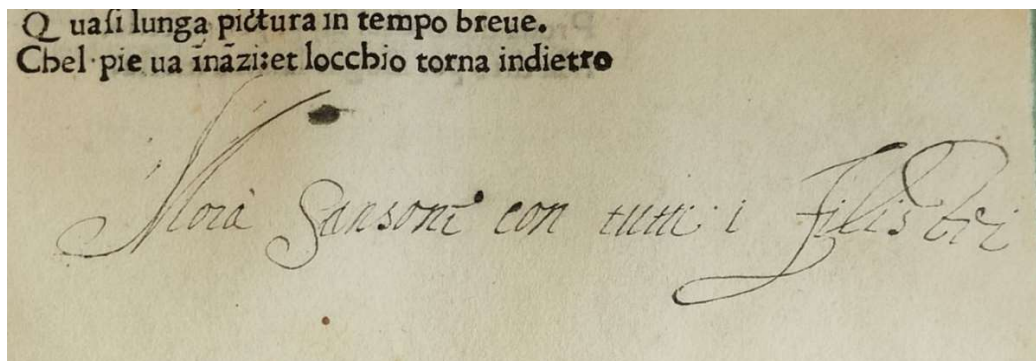 Q uaſi lunga pictura in tempo breue.
Chel pie ua īnāzi: et locchio torna indietro
Morà Sansone con tutti i Filistei